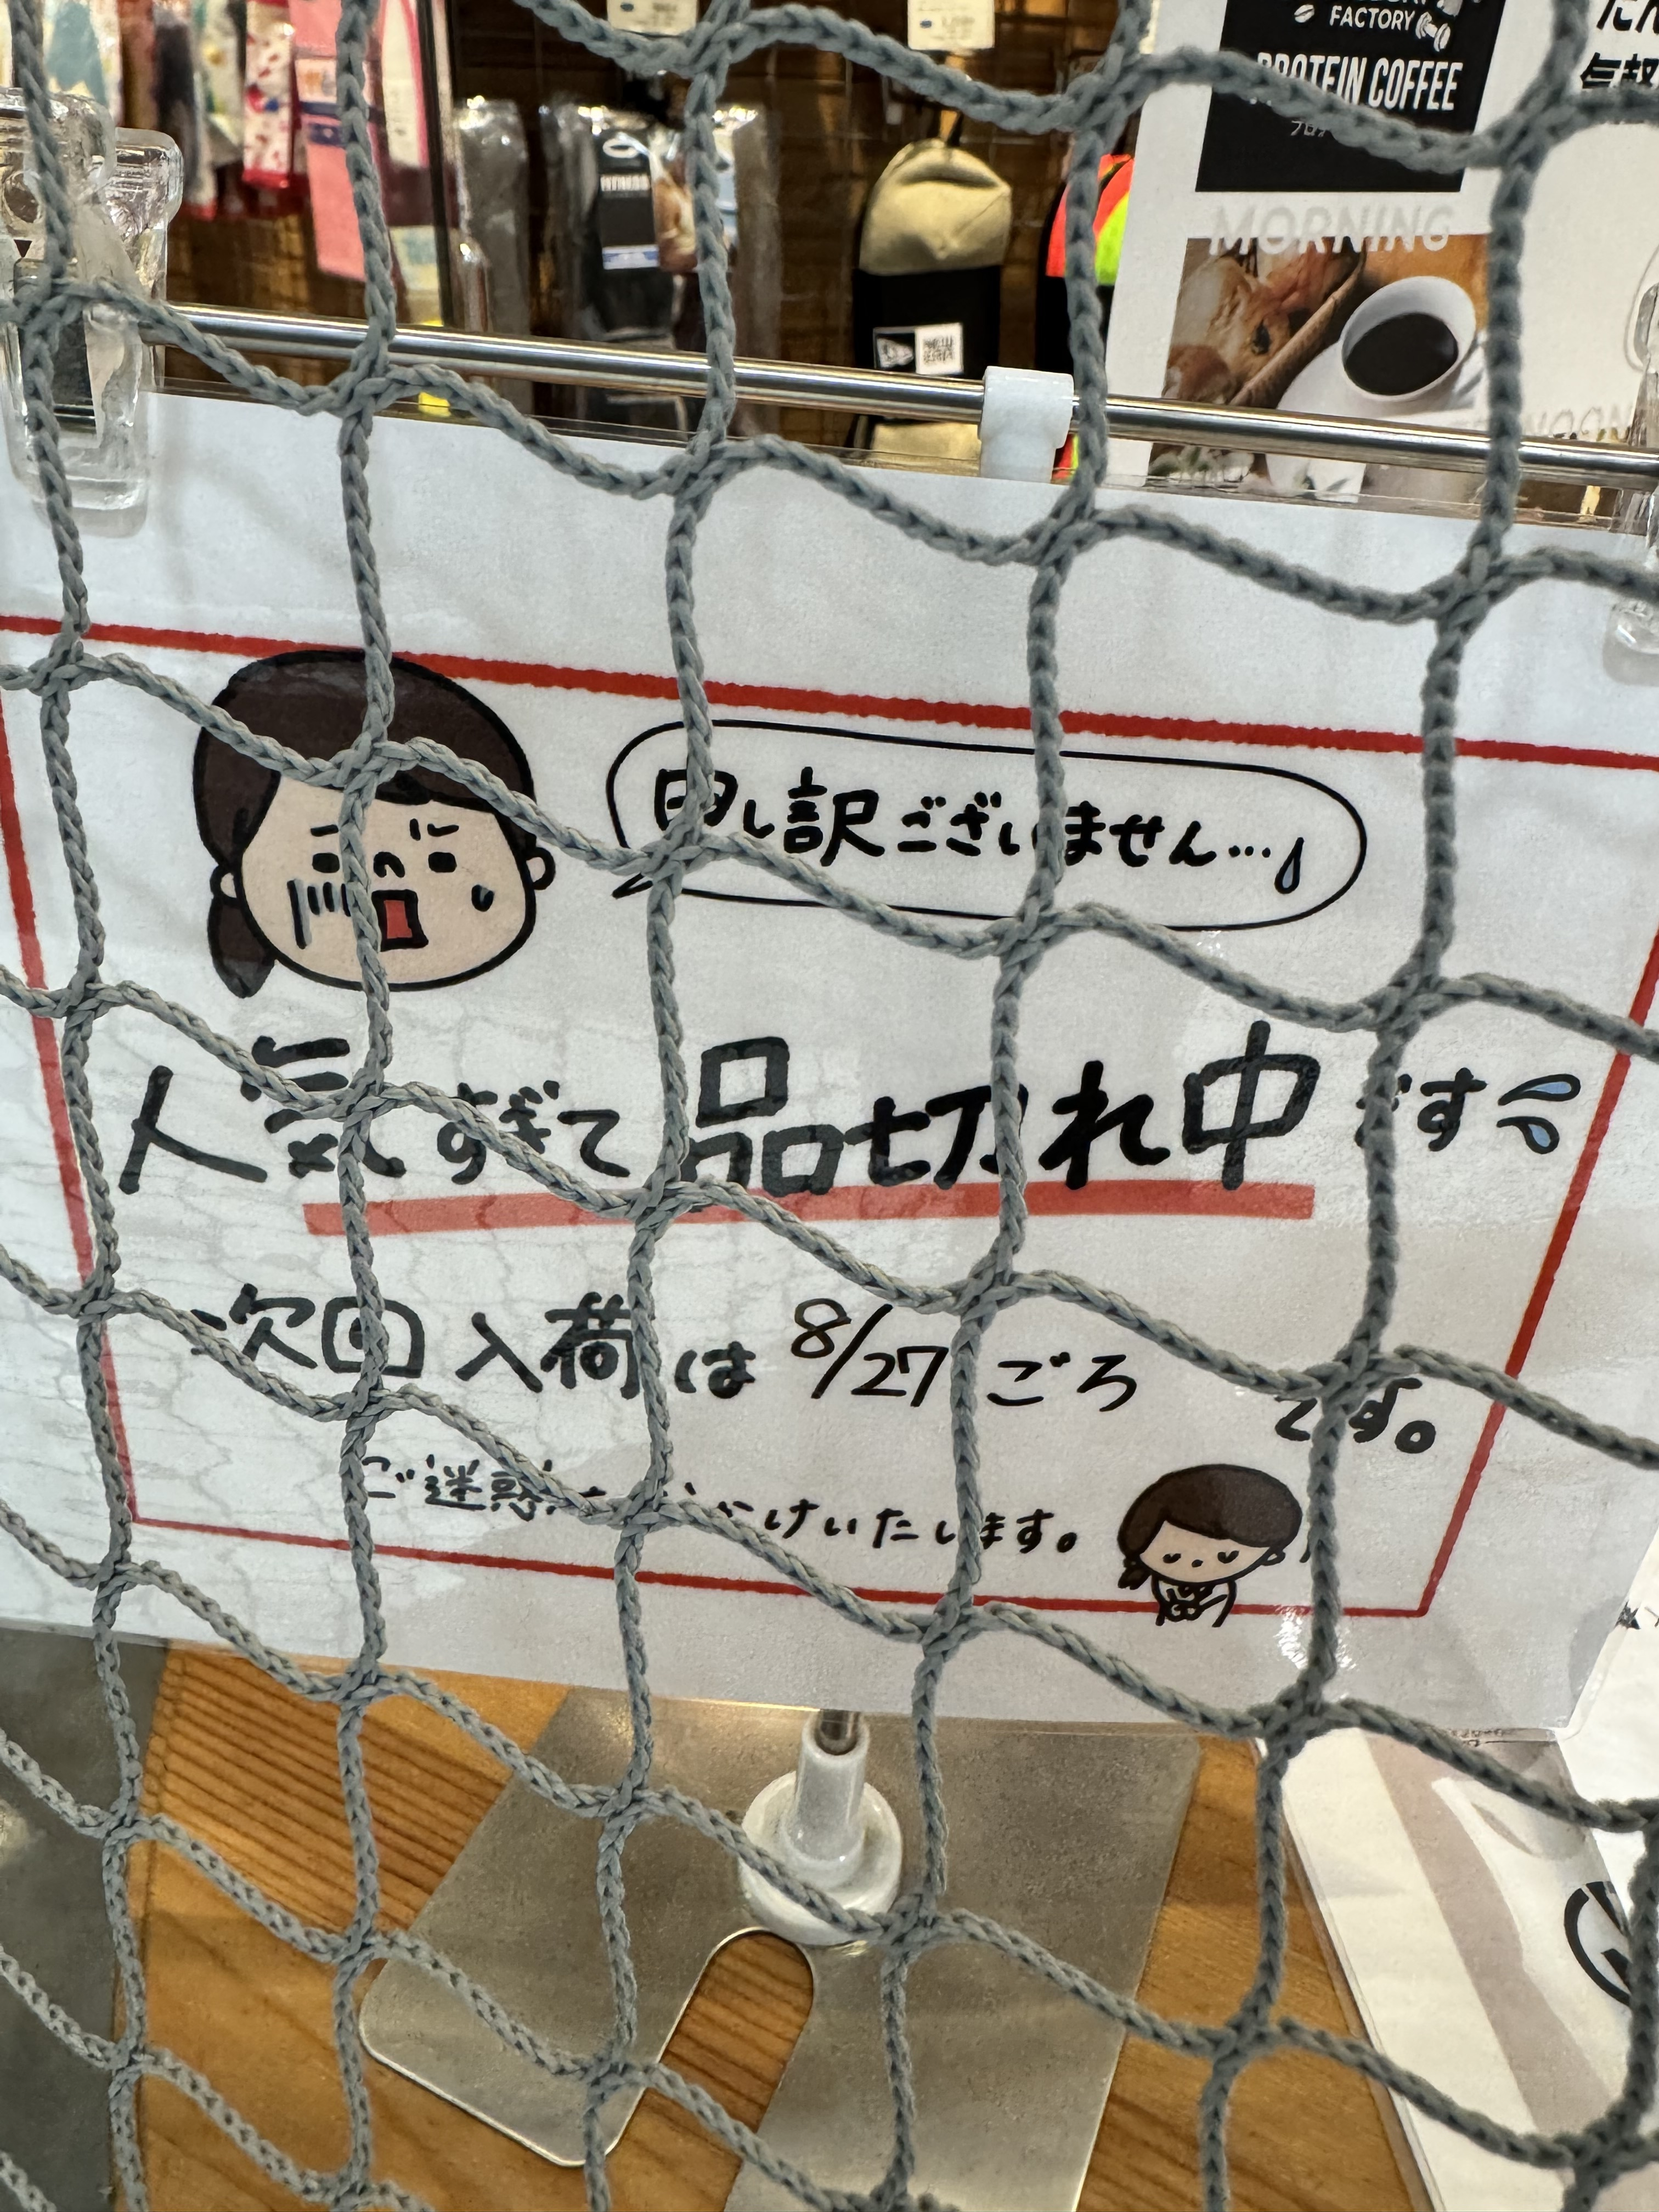 FACTORY
PROTEIN COFFEE
MORNING
FITNESS
申し訳ございません…
人気すぎて品切れ中です
次回入荷は 8/27 ごろ です。
ご迷惑をおかけいたします。